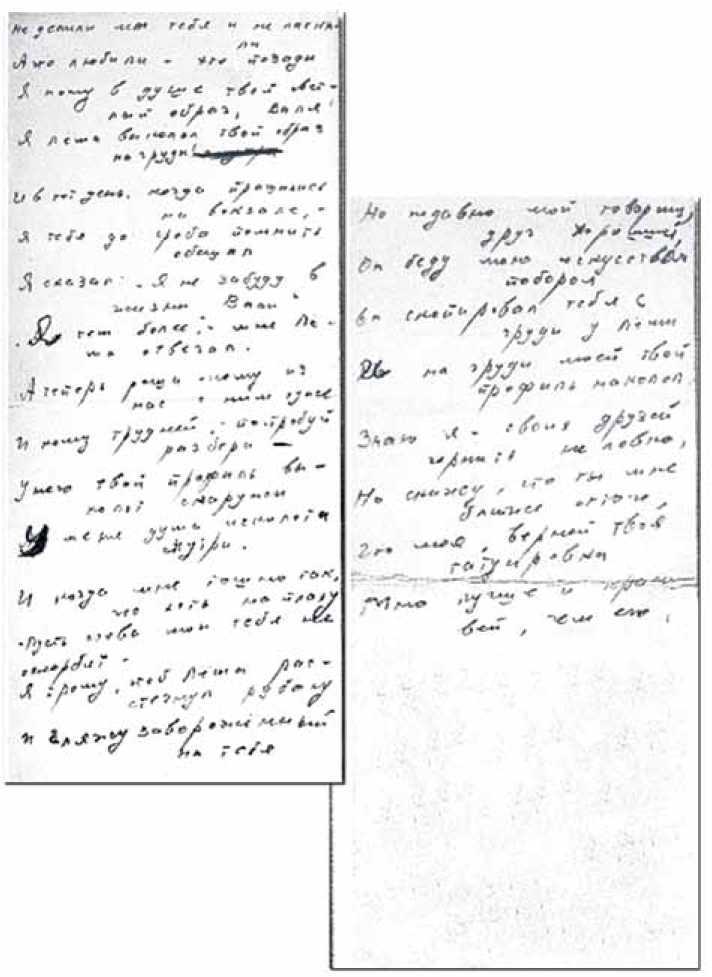 Не делили мы тебя и не ласкали
ли
А что любили - это позади
Я ношу в душе твой свет-
лый образ, Валя,
Я Леша выколол твой образ
на груди!
И в тот день, когда прощались
на вокзале, -
Я тебя до гроба помнить
обещал
Я сказал: "Я не забуду в
жизни Вали"
"Я тем более", - мне Лё-
ша отвечал.
А теперь реши кому из
нас с ним хуже
И кому трудней, - попробуй
разбери -
У него твой профиль вы-
колот снаружи
У меня душа исколота
внутри.
И когда мне тошно так,
что хоть на плаху
Пусть слова мои тебя не
оскорбят -
Я прошу, чтоб Лёша рас-
стегнул рубаху
И гляжу завороженный
на тебя
Но недавно мой товарищ,
друг хороший,
Он беду мою искусством
поборол
Он скопировал тебя с
груди у Лёши
И на грудь моей твой
профиль наколол.
Знаю я - своих друзей
чернить неловко,
Но скажу, что ты мне
ближе оттого,
Что моя, верней твоя
татуировка
Много лучше и краси-
вей, чем его,